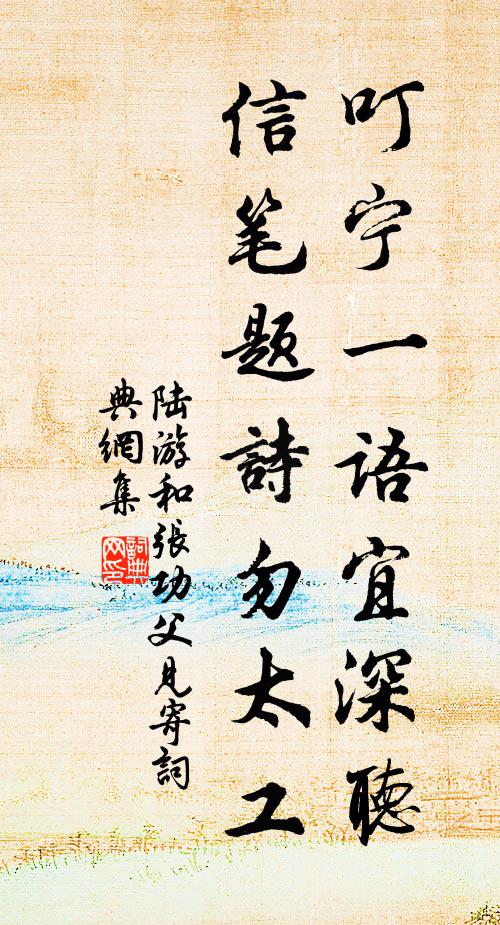 叮宁一语宜深聴
信笔题詩勿太工
陆游和张功父見寄詞
典網集
詞典
网印